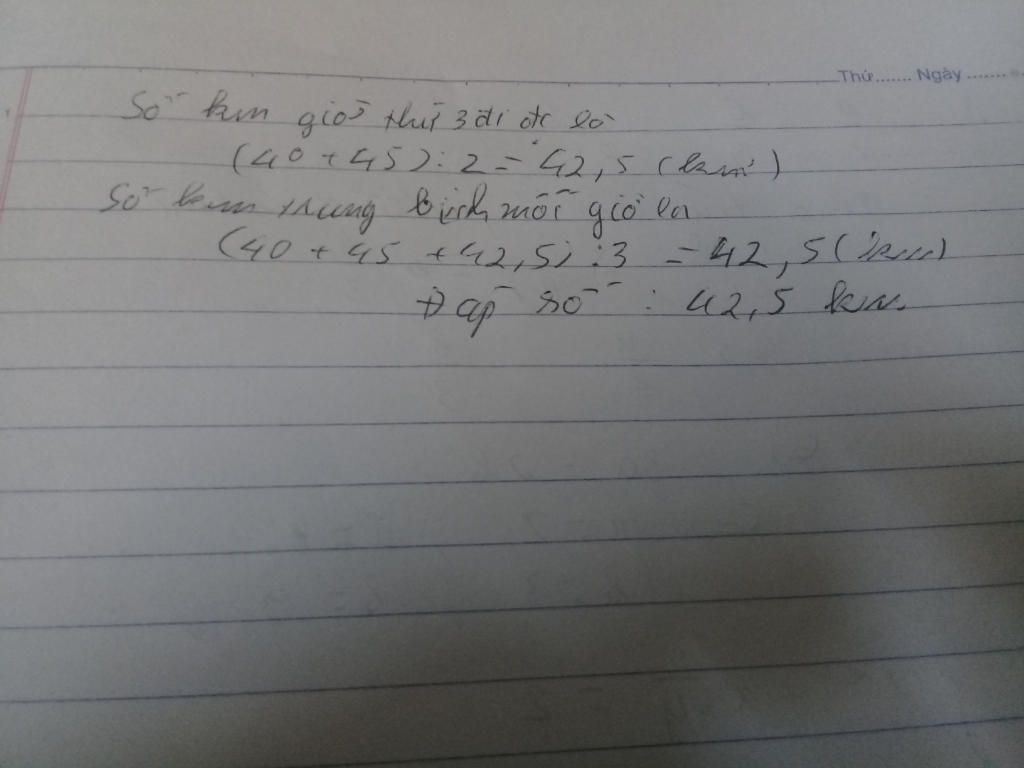 Thứ....... Ngày ........
Số km giờ thứ 3 đi đc là
(40 + 45) : 2 = 42,5 (km)
Số km trung bình mỗi giờ là
(40 + 45 + 42,5) : 3 = 42,5 (km)
Đáp số : 42,5 km